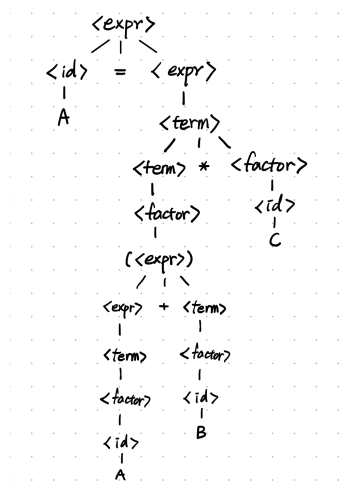 <expr>
<id> = <expr>
A
<term>
<term> * <factor>
<factor> <id>
C
(<expr>)
<expr> + <term>
<term> <factor>
<factor> <id>
B
<id>
A